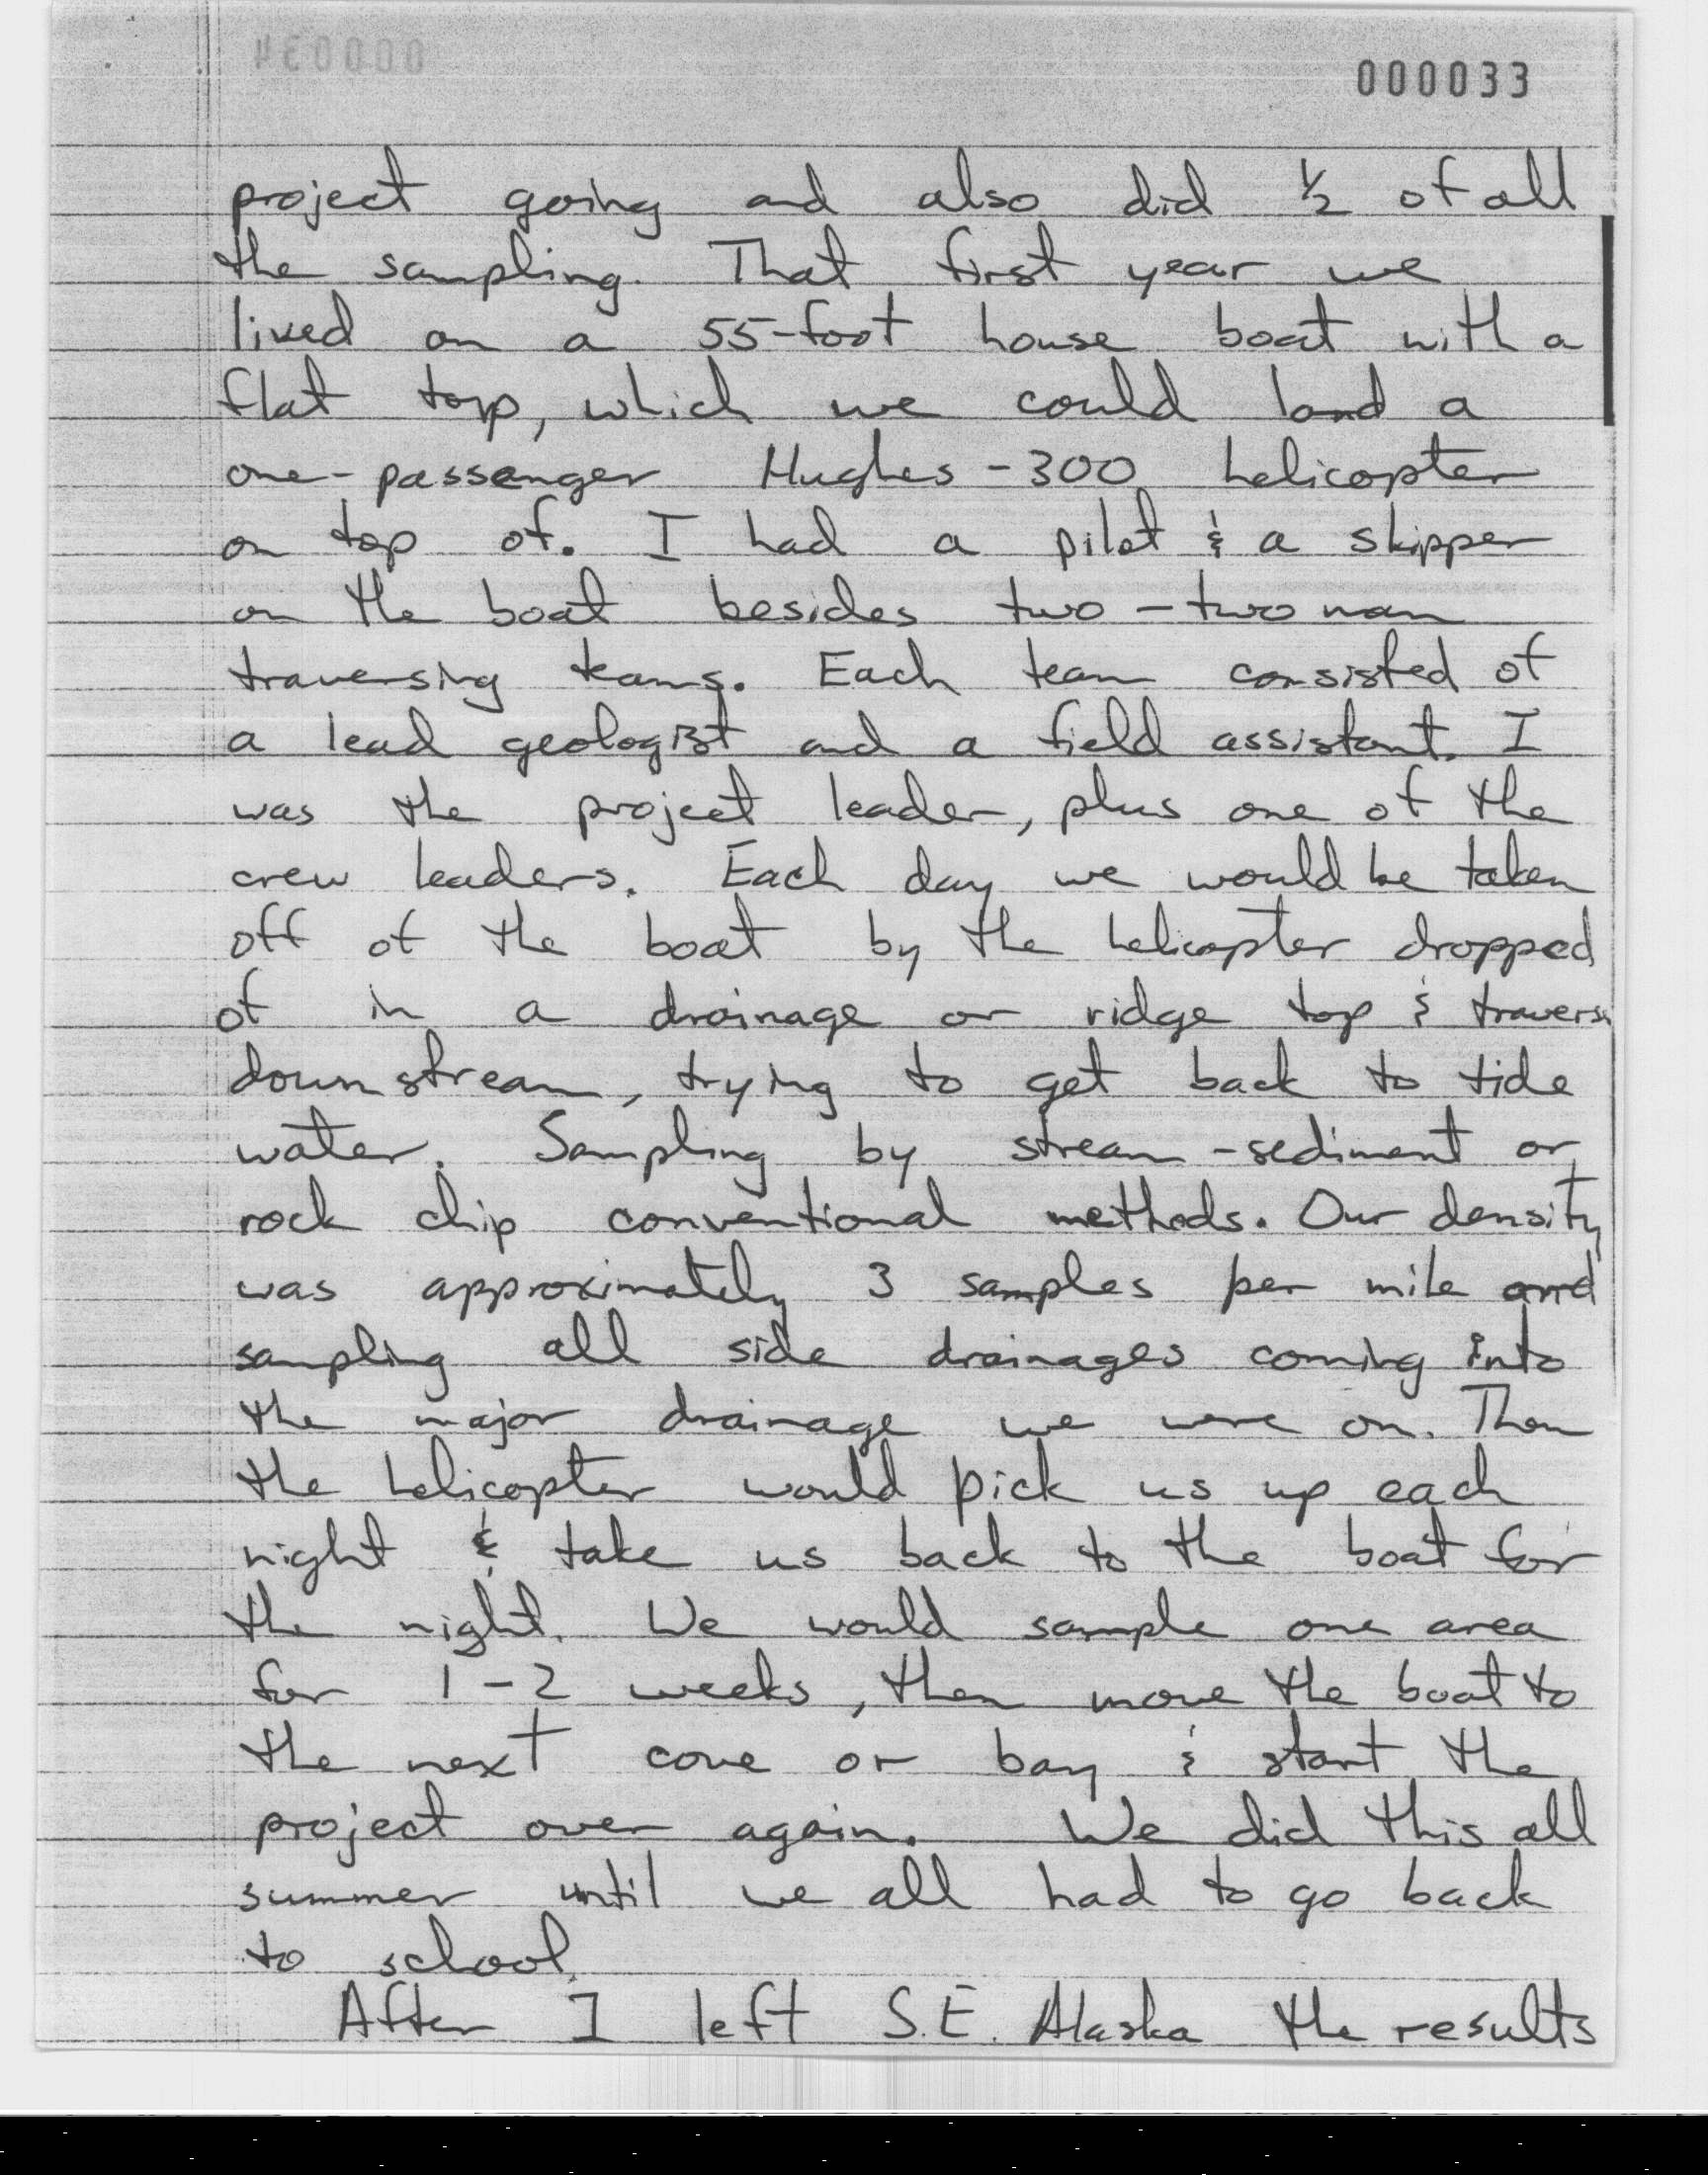 000033
project going and also did ½ of all
the sampling. That first year we
lived on a 55-foot house boat with a
flat top, which we could land a
one-passenger Hughes-300 helicopter
on top of. I had a pilot & a skipper
on the boat besides two - two man
traversing teams. Each team consisted of
a lead geologist and a field assistant. I
was the project leader, plus one of the
crew leaders. Each day we would be taken
off of the boat by the helicopter dropped
of in a drainage or ridge top & travers
downstream, trying to get back to tide
water. Sampling by stream-sediment or
rock chip conventional methods. Our density
was approximately 3 samples per mile and
sampling all side drainages coming into
the major drainage we were on. Then
the helicopter would pick us up each
night & take us back to the boat for
the night. We would sample one area
for 1-2 weeks, then move the boat to
the next cove or bay & start the
project over again. We did this all
summer until we all had to go back
to school.
After I left S.E. Alaska the results